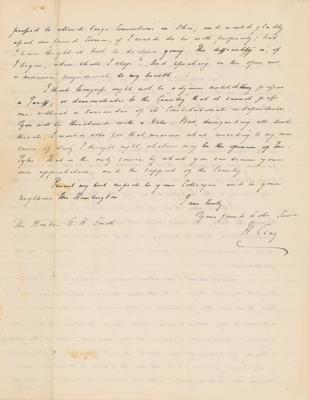 pressed to attend large Conventions in Ohio, and would gladly
 your friend Corwin, if I could do so with propriety; but
I have thought it best to decline going. The difficulty is, if
I begin, when shall I stop? And speaking in the open air
 prejudicial to my health.
I think Congress ought not to adjourn without passing
a Tariff, or demonstrating to the Country that it cannot pass
one without a surrender of its Constitutional independence.
You will be threatened with a Veto. But, disregarding all such
threats, I would vote for that measure which according to my own
sense of duty I thought right, whatever may be the opinion of Mr
Tyler. That is the only course by which you can secure your
own approbation, and the support of the Country.
Present my best respects to your Colleague and to your
neighbour Mr Huntington
I am truly
Your friend & obt. Serv.
H. Clay
The Honble. Smith